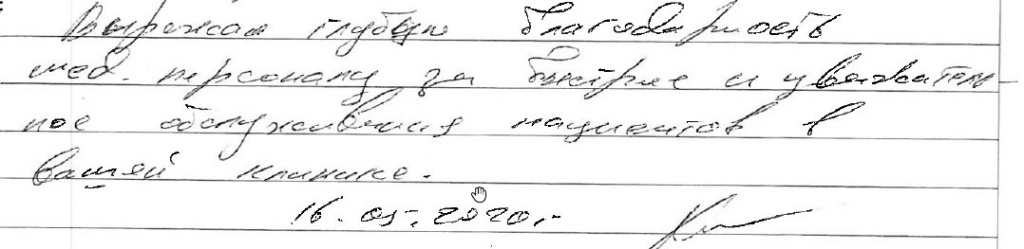 Выражаю глубокую благодарность
мед. персоналу за быстрое и уважитель-
ное обслуживания пациентов в
вашей клинике.
16.05.2020.